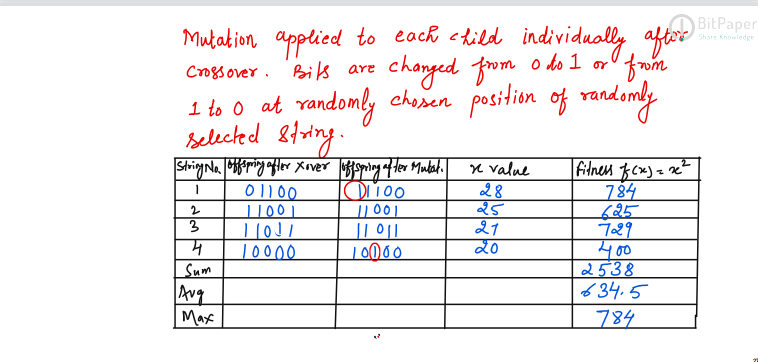 BitPaper
Share Knowledge
Mutation applied to each child individually after
crossover. Bits are changed from 0 to 1 or from
1 to 0 at randomly chosen position of randomly
selected string.
String No. offspring after Xover offspring after Mutat. x value Fitness f(x) = x²
1 01100 11100 28 784
2 11001 11001 25 625
3 11011 11011 27 729
4 10000 10100 20 400
Sum 2538
Avg 634.5
Max 784